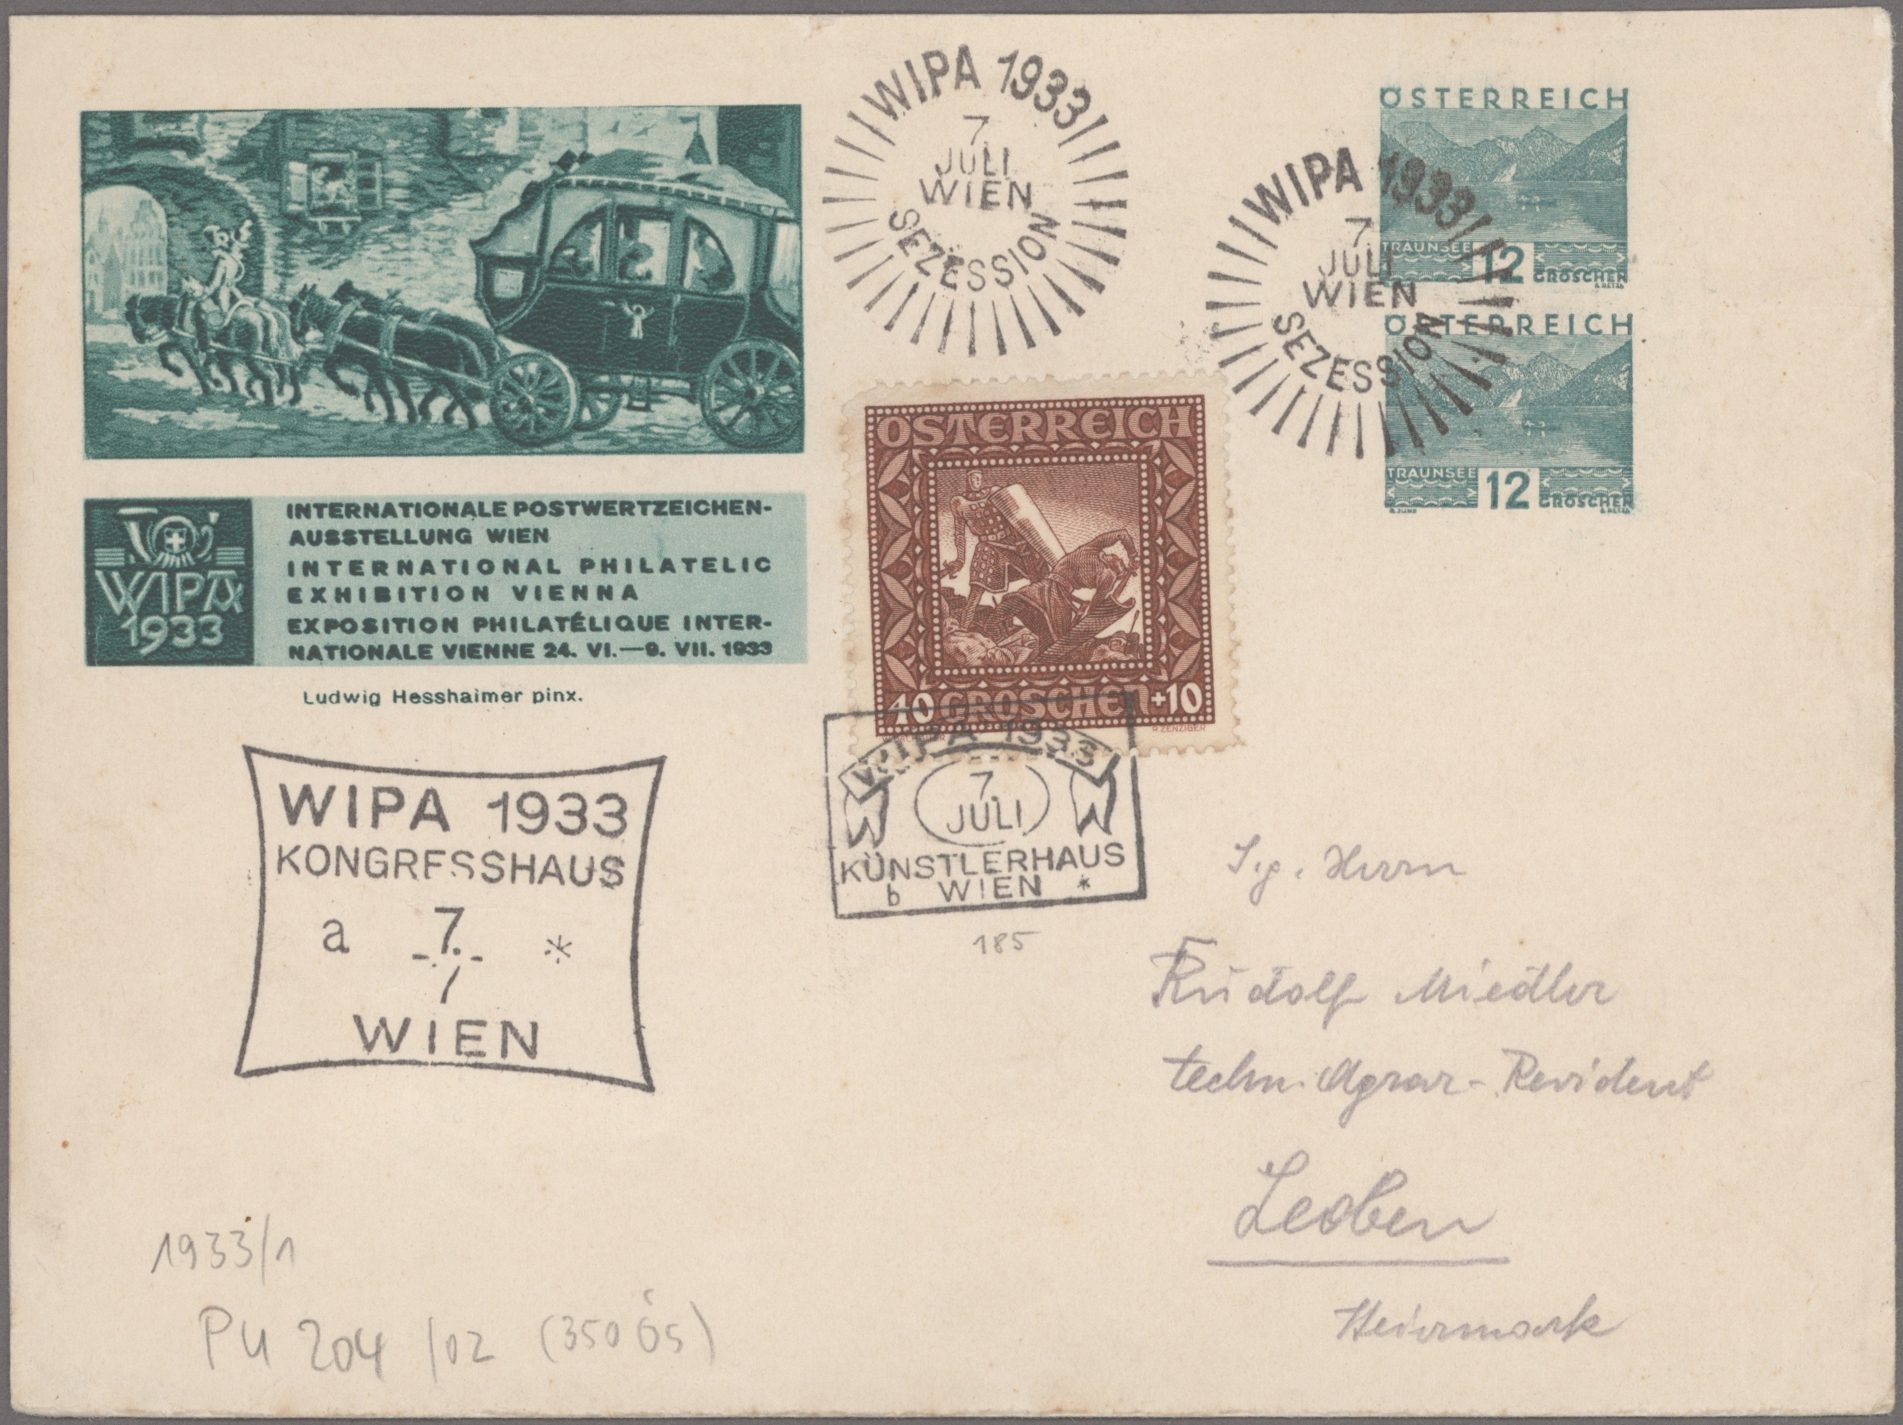 WIPA 1933
7.
JULI
WIEN
SEZESSION
ÖSTERREICH
TRAUNSEE 12 GROSCHEN
WIPA 1933
7.
JULI
WIEN
SEZESSION
ÖSTERREICH
TRAUNSEE 12 GROSCHEN
ÖSTERREICH
40 GROSCHEN +10
WIPA
1933
INTERNATIONALE POSTWERTZEICHEN-
AUSSTELLUNG WIEN
INTERNATIONAL PHILATELIC
EXHIBITION VIENNA
EXPOSITION PHILATÉLIQUE INTER-
NATIONALE VIENNE 24. VI.—9. VII. 1933
Ludwig Hesshaimer pinx.
WIPA 1933
KONGRESSHAUS
a 7. *
7
WIEN
WIPA 1933
7.
JULI
KÜNSTLERHAUS
b WIEN *
185
Herrn
Rudolf Miedler
techn. Agrar-Revident
Leoben
Steiermark
1933/1
PU 204/02 (350 ÖS)